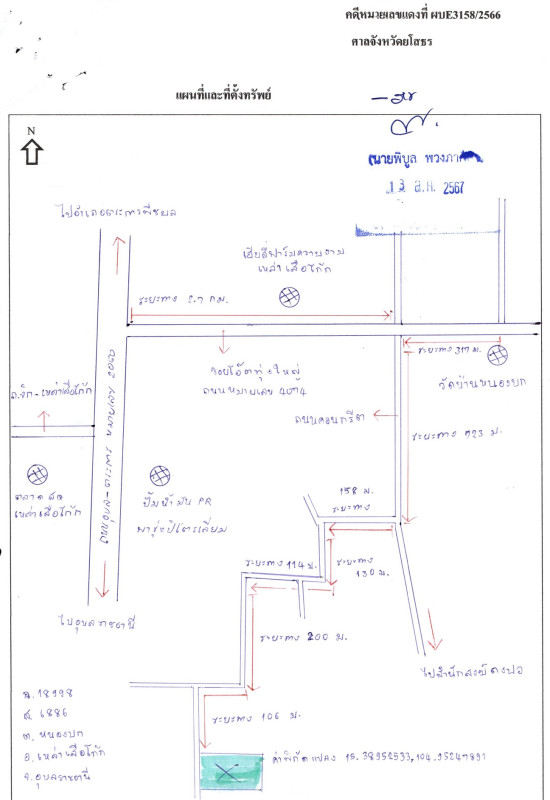 คดีหมายเลขแดงที่ ผบE3158/2566
ศาลจังหวัดยโสธร
แผนที่และที่ตั้งทรัพย์
N
(นายพิบูล พวงภา
13 ส.ค. 2567
ไปอำเภอตระการพืชผล
เฮียตี่ฟาร์มความงาม
เหล่าเสือโก้ก
ระยะทาง 2.7 กม.
ระยะทาง 317 ม.
ซอยโอ๊ตทุ่งใหญ่
ถนนหมายเลข 4074
วัดบ้านหนองบก
ถ.จิก-เหล่าเสือโก้ก
ถนนคอนกรีต
ระยะทาง 923 ม.
ตลาดสด
เหล่าเสือโก้ก
ปั๊มน้ำมัน PR
พาช่อปิโตรเลี่ยม
158 ม.
ระยะทาง
ระยะทาง 114 ม.
ระยะทาง
130 ม.
ไปอุบลราชธานี
ระยะทาง 200 ม.
ไปสำนักสงฆ์ดงปอ
ฉ.18998
ด. 6886
ต. หนองบก
อ.เหล่าเสือโก้ก
จ.อุบลราชธานี
ระยะทาง 106 ม.
ค่าพิกัดแปลง 15.38952533,104.95247891